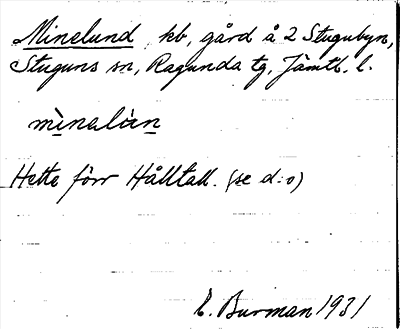 Minelund kb, gård å 2 Stugubyn,
Stuguns sn, Ragunda tg, Jämtl. l.
Hette förr Hålltall. (se d:o)
E. Burman 1931